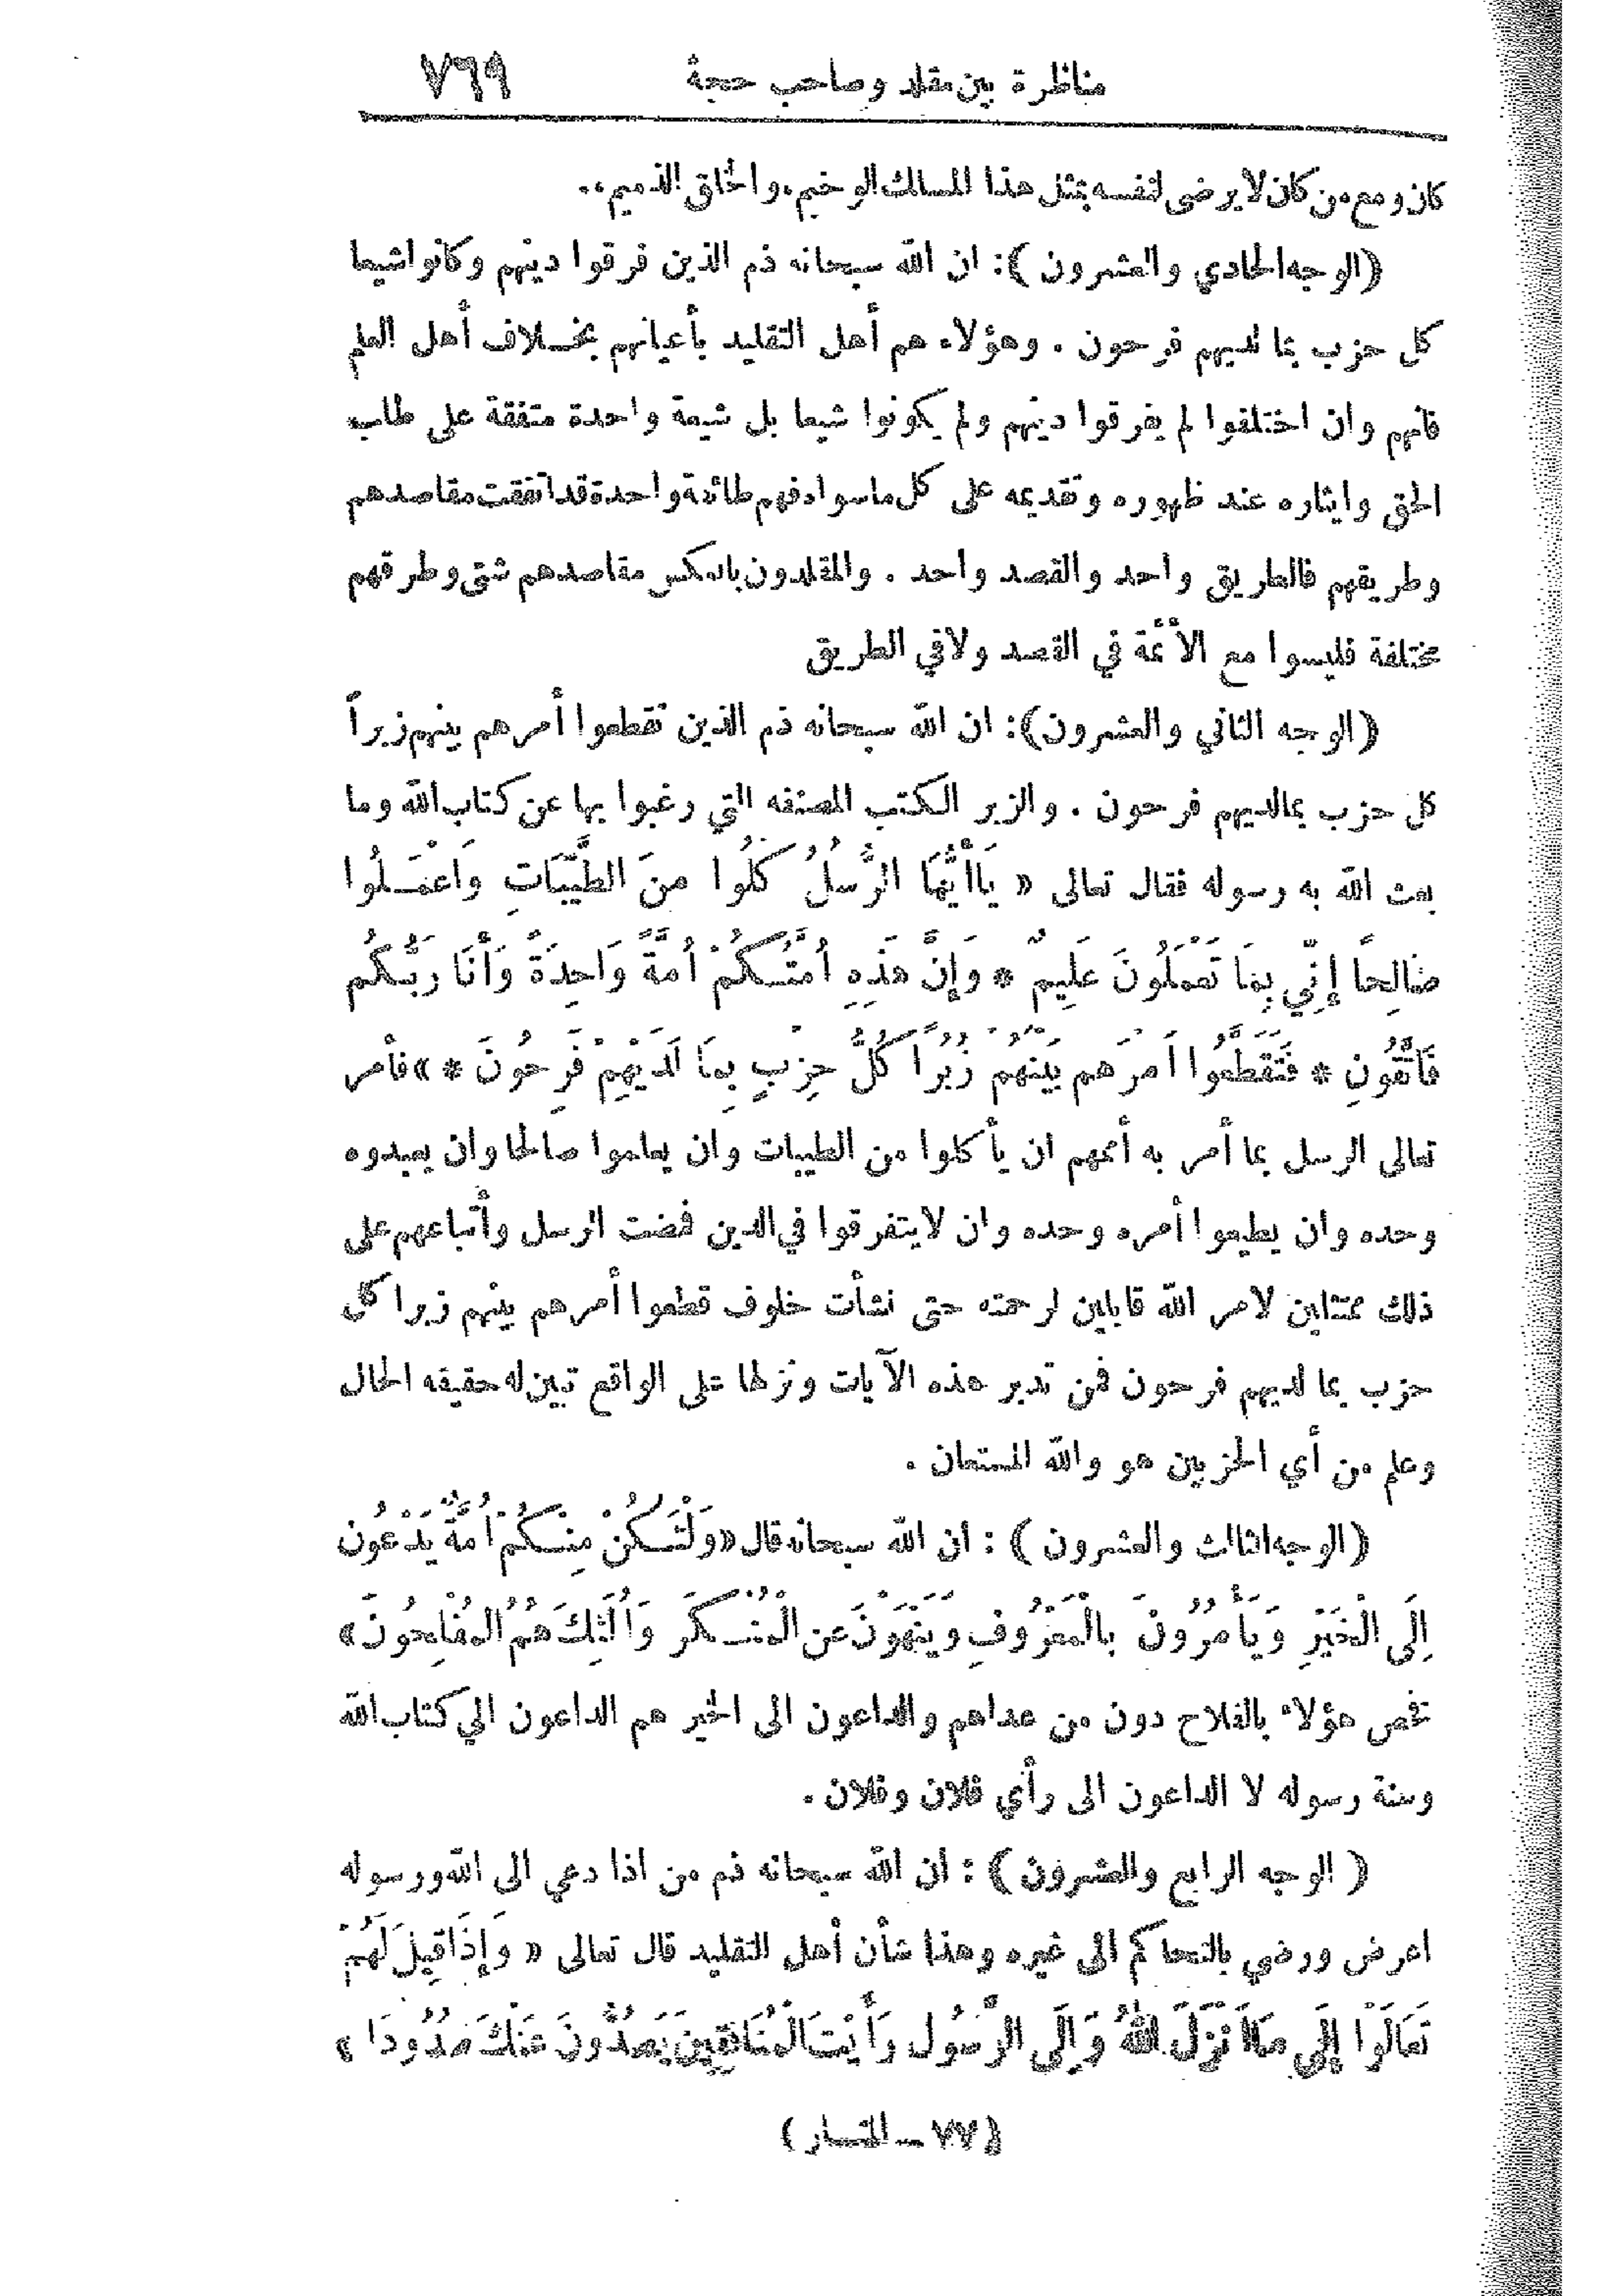 مناظرة بين مقلد وصاحب حجة ٧٦٩
كان ومع من كان لا يرضى لنفسه بمثل هذا المسلك الوخيم، والخلق الذميم،.
(الوجه الحادي والعشرون): ان الله سبحانه ذم الذين فرقوا دينهم وكانوا شيعا
كل حزب بما لديهم فرحون . وهؤلاء هم أهل التقليد بأعيانهم بخلاف أهل العلم
فانهم وان اختلفوا لم يفرقوا دينهم ولم يكونوا شيعا بل شيعة واحدة متفقة على طلب
الحق وايثاره عند ظهوره وتقديمه على كل ما سواه فهم طائفة واحدة قد اتفقت مقاصدهم
وطريقهم فالطريق واحد والقصد واحد . والمقلدون بالعكس مقاصدهم شتى وطرقهم
مختلفة فليسوا مع الأئمة في القصد ولا في الطريق
(الوجه الثاني والعشرون): ان الله سبحانه ذم الذين تقطعوا أمرهم بينهم زبراً
كل حزب بما لديهم فرحون . والزبر الكتب المصنفه التي رغبوا بها عن كتاب الله وما
بعث الله به رسوله فقال تعالى « يَاأَيُّهَا الرُّسُلُ كُلُوا مِنَ الطَّيِّبَاتِ وَاعْمَلُوا
صَالِحًا إِنِّي بِمَا تَعْمَلُونَ عَلِيمٌ * وَإِنَّ هَذِهِ أُمَّتُكُمْ أُمَّةً وَاحِدَةً وَأَنَا رَبُّكُم
فَاتَّقُونِ * فَتَقَطَّعُوا أَمْرَهم بَيْنَهُمْ زُبُرًا كُلُّ حِزْبٍ بِمَا لَدَيْهِمْ فَرِحُونَ *» فأمر
تعالى الرسل بما أمر به أممهم ان يأكلوا من الطيبات وان يعلموا صالحا وان يعبدوه
وحده وان يطيعوا أمره وحده وان لا يتفرقوا في الدين فمضت الرسل وأتباعهم على
ذلك ممتثلين لامر الله قابلين لرحمته حتى نشأت خلوف قطعوا أمرهم بينهم زبرا كل
حزب بما لديهم فرحون فمن تدبر هذه الآيات ونزلها على الواقع تبين له حقيقه الحال
وعلم من أي الحزبين هو والله المستعان .
(الوجه الثالث والعشرون) : أن الله سبحانه قال «وَلْتَكُنْ مِنْكُمْ أُمَّةٌ يَدْعُونَ
إِلَى الْخَيْرِ وَيَأْمُرُونَ بِالْمَعْرُوفِ وَيَنْهَوْنَ عن الْمُنْكَرِ وَأُولَئِكَ هُمُ الْمُفْلِحُونَ»
فخص هؤلاء بالفلاح دون من عداهم والداعون الى الخير هم الداعون الي كتاب الله
وسنة رسوله لا الداعون الى رأي فلان وفلان .
( الوجه الرابع والعشرون) : أن الله سبحانه ذم من اذا دعي الى الله ورسوله
اعرض ورضي بالتحاكم الى غيره وهذا شأن أهل التقليد قال تعالى « وَإِذَا قِيلَ لَهُمْ
تَعَالَوْا إِلَى مَا أَنْزَلَ اللهُ وَإِلَى الرَّسُولِ رَأَيْتَ الْمُنَافِقِينَ يَصُدُّونَ عَنْكَ صُدُودًا »
(٧٧ ـ المنار)